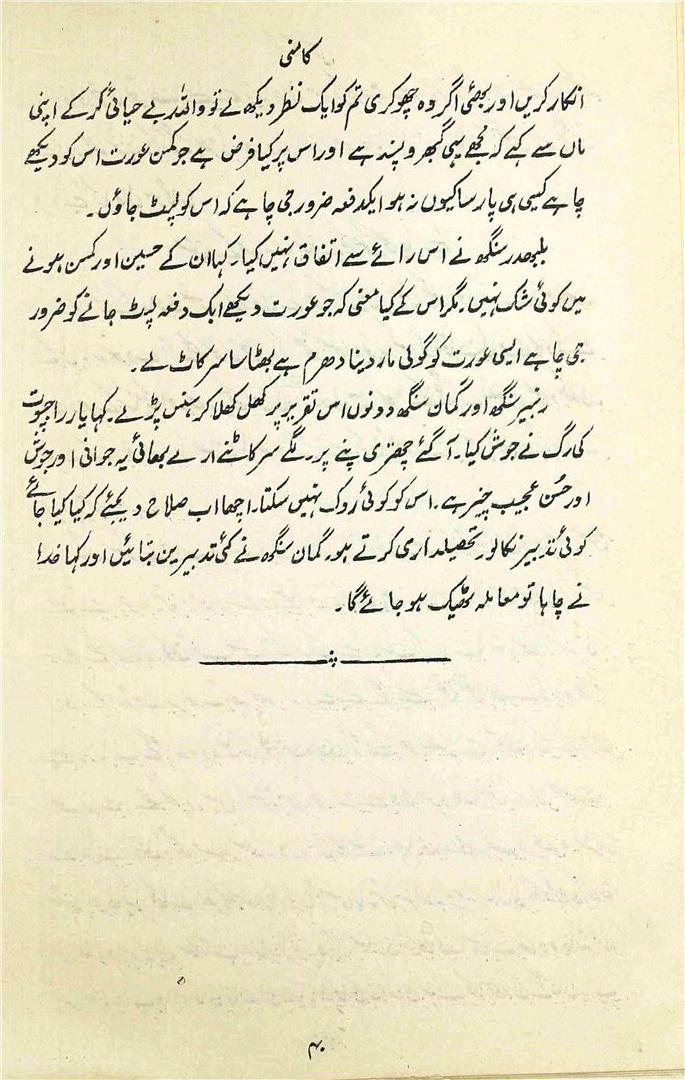 کامنی
انکار کریں اور بھئی اگر وہ چھوکری تم کو ایک نظر دیکھ لے تو واللہ بے حیائی کر کے اپنی
ماں سے کہے کہ مجھے یہی گبھرو پسند ہے اور اس پر کیا فرض ہے جو کمسن عورت اس کو دیکھے
چاہے کیسی ہی پارسا کیوں نہ ہو ایکدفعہ ضرور جی چاہے کہ اس کو لپٹ جاؤں۔
بلبھدر سنگھ نے اس رائے سے اتفاق نہیں کیا۔ کہا ان کے حسین اور کمسن ہونے
میں کوئی شک نہیں۔ مگر اس کے کیا معنی کہ جو عورت دیکھے ایک دفعہ لپٹ جانے کو ضرور
جی چاہے ایسی عورت کو گولی مار دینا دھرم ہے بھٹا سا سر کاٹ لے۔
رنبیر سنگھ اور گمان سنگھ دونوں اس تقریر پر کھل کھلا کر ہنس پڑے۔ کہا یار راجپوت
کی رگ نے جوش کیا۔ آگئے چھتری پنے پر۔ لگے سر کاٹنے ارے بھائی یہ جوانی اور جوش
اور حسن عجیب چیز ہے۔ اس کو کوئی روک نہیں سکتا۔ اچھا اب صلاح دیجئے کہ کیا کیا جائے
کوئی تدبیر نکالو۔ تحصیلداری کرتے ہو۔ گمان سنگھ نے کئی تدبیریں بتائیں اور کہا خدا
نے چاہا تو معاملہ ٹھیک ہو جائے گا۔
۴۰